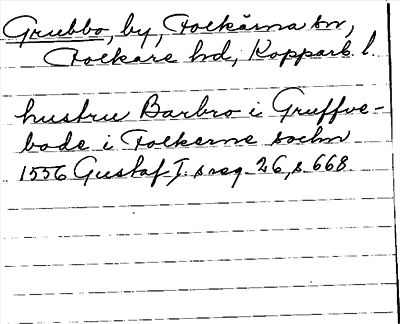 Grubbo, by, Folkärna sn,
Folkare hd, Kopparb. l.
hustru Barbro i Gruffve-
bode i Folkerne sochn
1556 Gustaf I:s reg. 26, s 668.